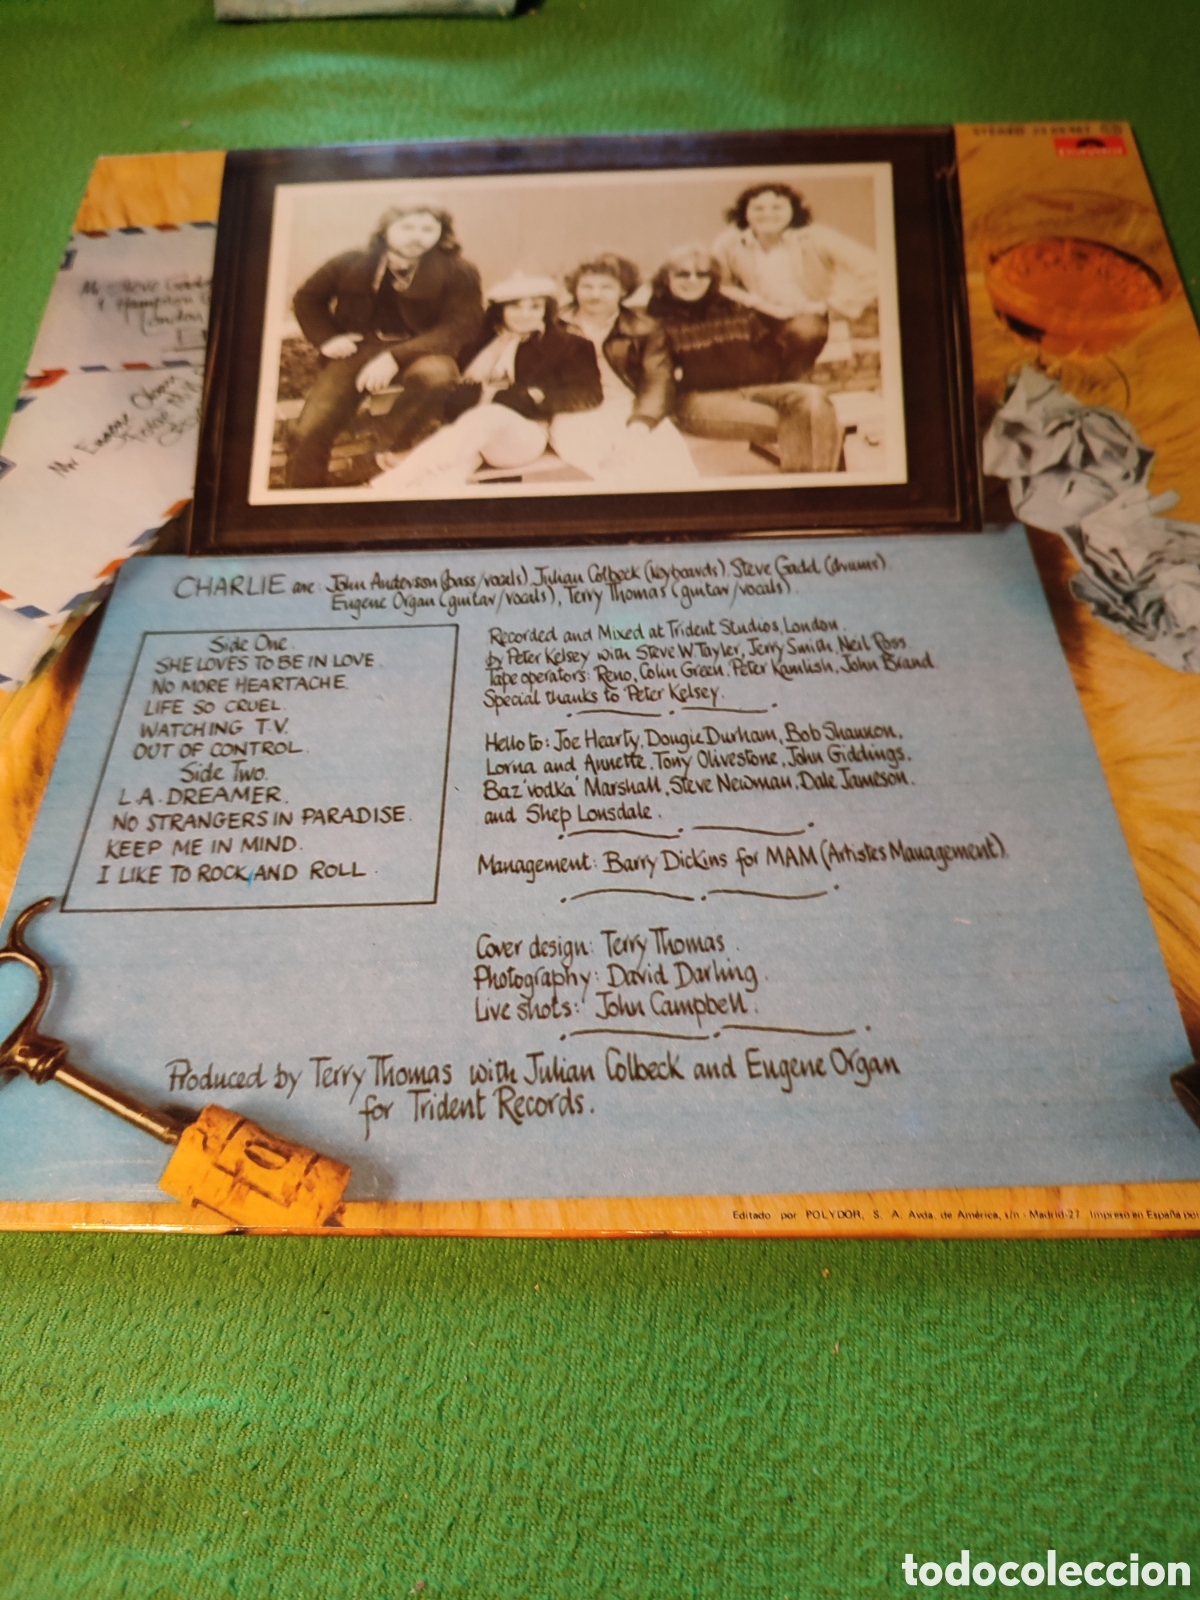 STEREO
Polydor
Mr Steve Gadd
London
Mr Eugene Organ
CHARLIE are: John Anderson (bass/vocals), Julian Colbeck (keyboards), Steve Gadd (drums)
Eugene Organ (guitar/vocals), Terry Thomas (guitar/vocals).
Side One.
SHE LOVES TO BE IN LOVE.
NO MORE HEARTACHE.
LIFE SO CRUEL.
WATCHING T.V.
OUT OF CONTROL.
Side Two.
L.A. DREAMER.
NO STRANGERS IN PARADISE.
KEEP ME IN MIND.
I LIKE TO ROCK AND ROLL.
Recorded and Mixed at Trident Studios, London.
by Peter Kelsey with Steve W Tayler, Jerry Smith, Neil Ross
Tape operators: Reno, Colin Green, Peter Kamlish, John Brand.
Special thanks to Peter Kelsey.
Hello to: Joe Hearty, Dougie Durham, Bob Shannon,
Lorna and Annette, Tony Olivestone, John Giddings,
Baz 'vodka' Marshall, Steve Newman, Dale Jameson.
and Shep Lonsdale.
Management: Barry Dickins for MAM (Artistes Management).
Cover design: Terry Thomas.
Photography: David Darling.
Live shots: John Campbell.
Produced by Terry Thomas with Julian Colbeck and Eugene Organ
for Trident Records.
Editado por POLYDOR, S. A. Avda. de América, s/n - Madrid-27. Impreso en España por
todocoleccion